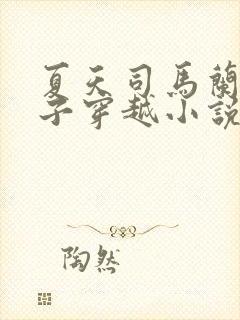 夏天司馬蘭
子穿越小説
陶然